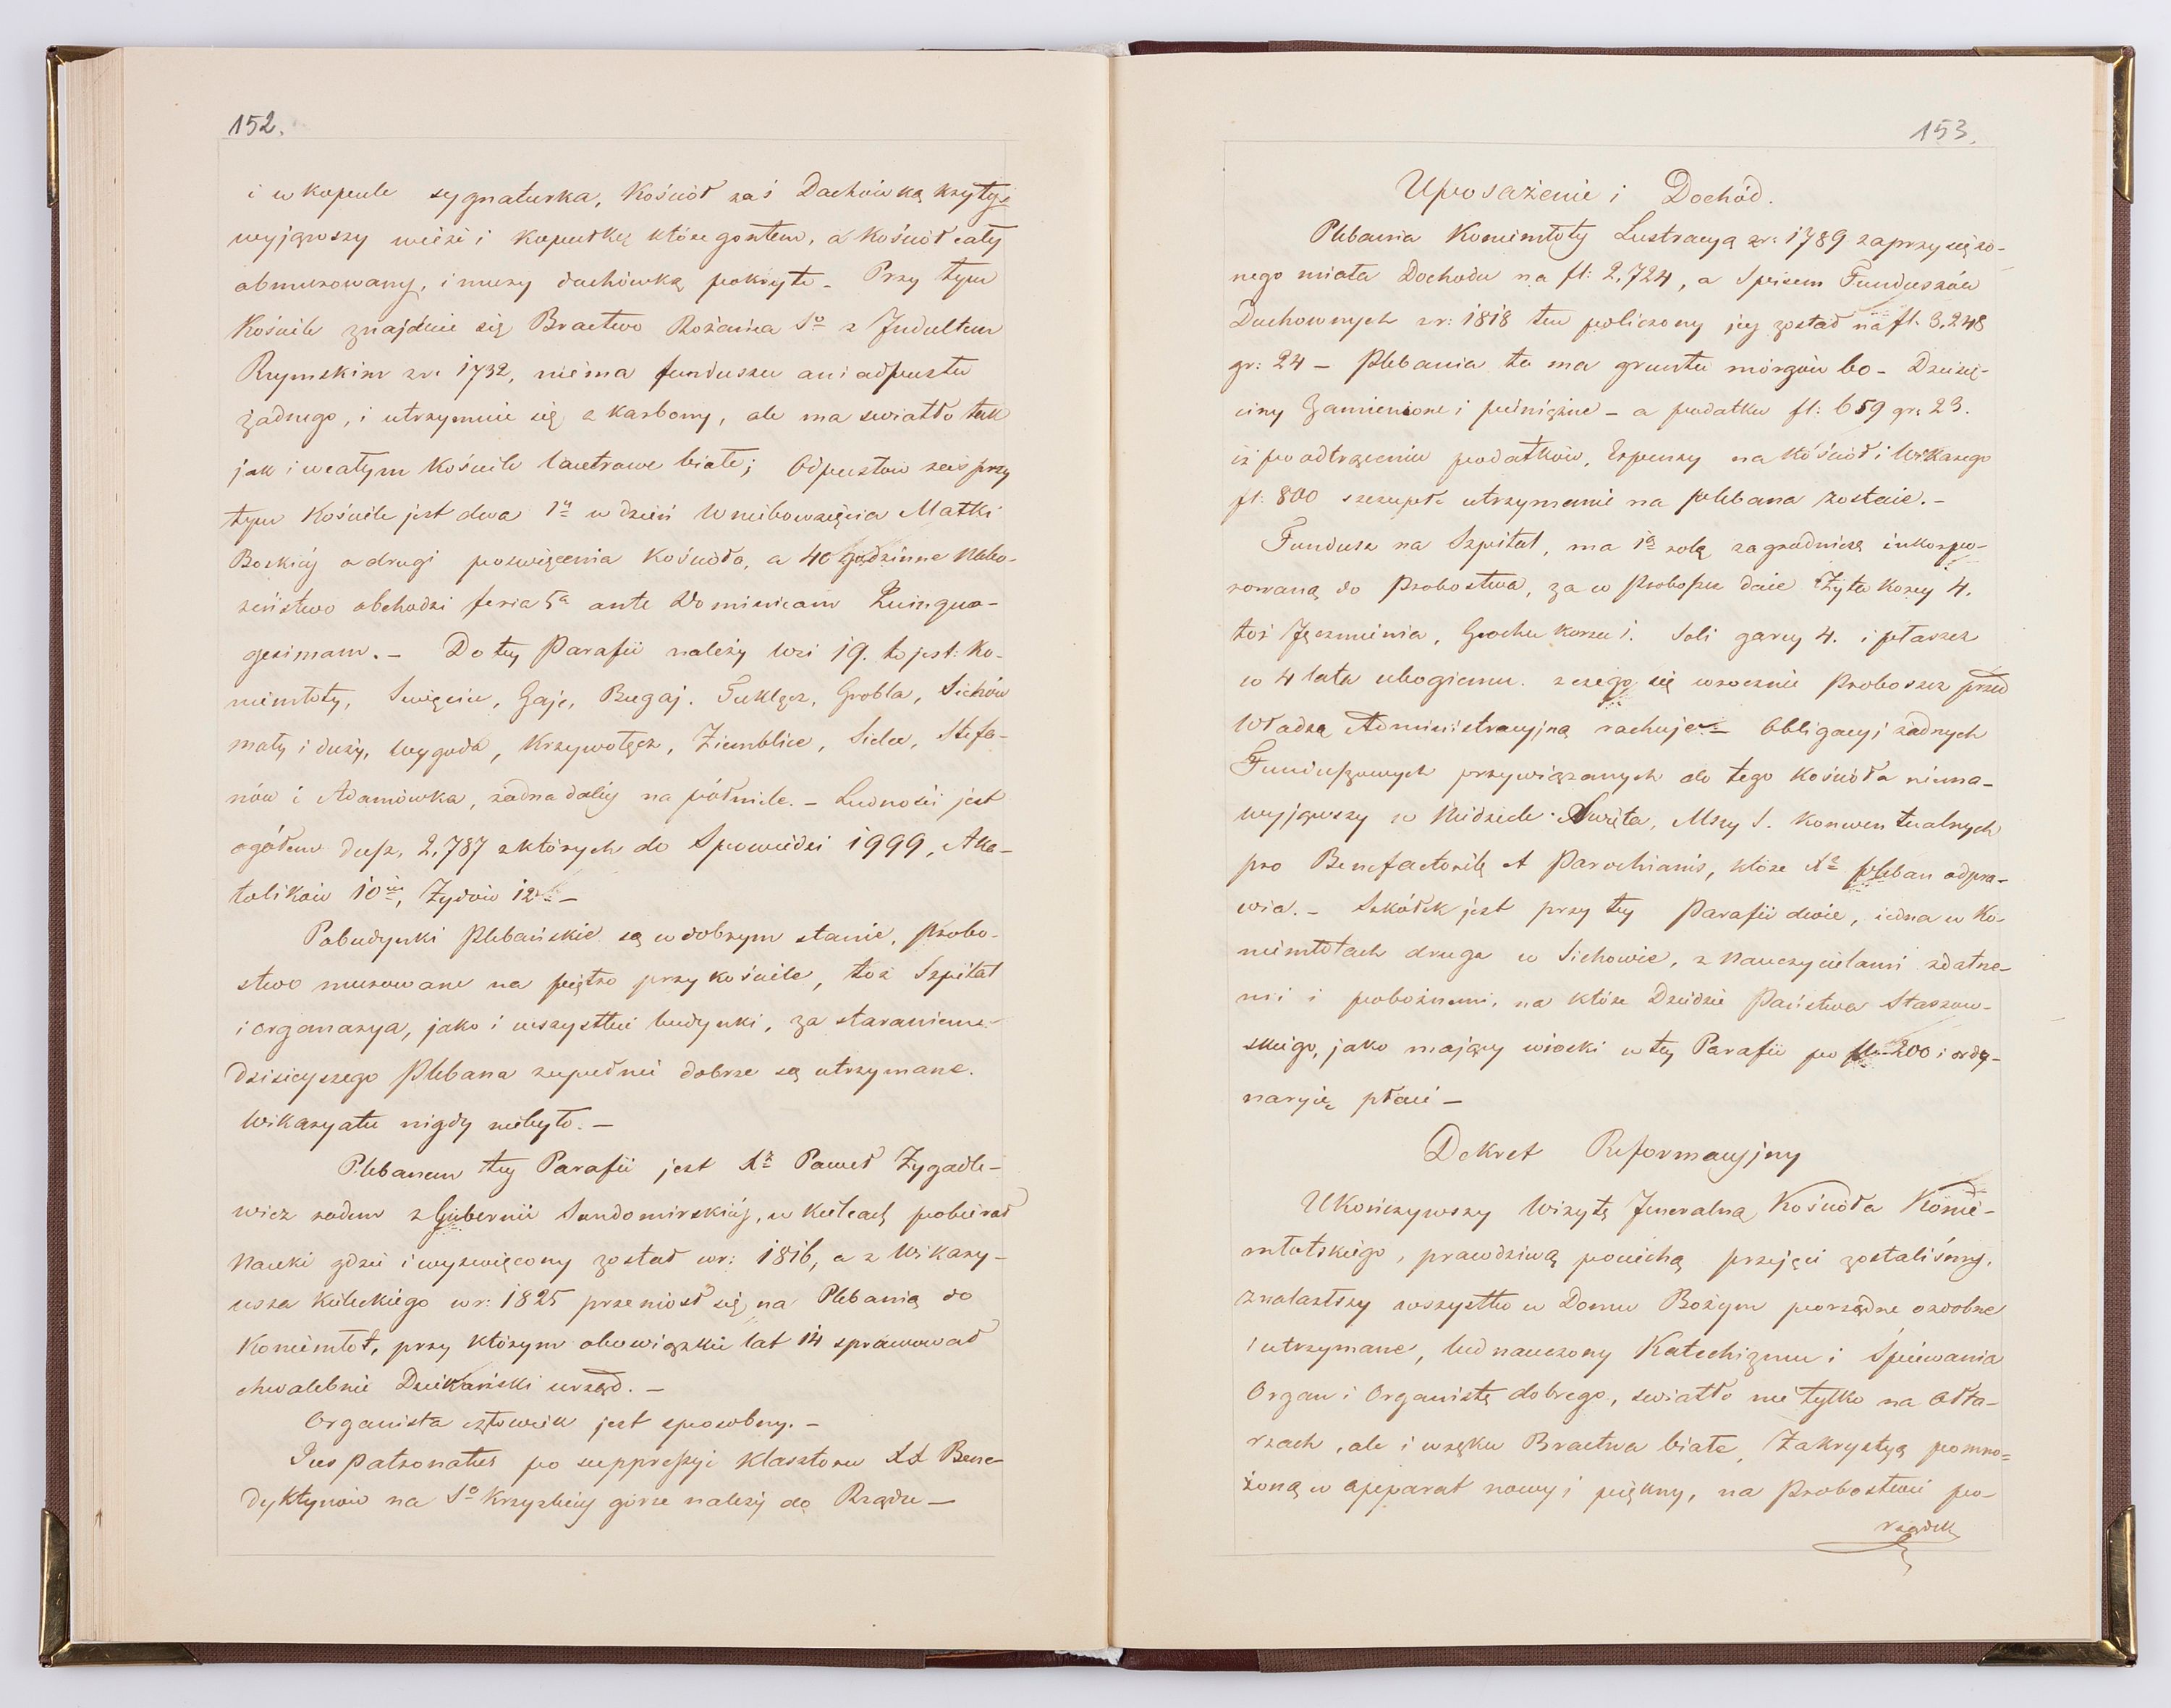 152.
i w kopule sygnaturka, Kościół zaś Dachówką kryty
wyjąwszy wieże i kopułkę które gontem, a Kościół cały
obmurowany, i mury dachówką pokryte – Przy tym
Kościele znajduie się Bractwo Rożańca So z Indultem
Rzymskim z r. 1732, niema funduszu ani odpustu
żadnego, i utrzymuie się z karbony, ale ma swiatło tak
jak i w całym Kościele białe; Odpustów zaś przy
tym Kościele jest dwa 1y w dzień Wniebowzięcia Matki
Boskiéj a drugi poswięcenia Kościoła, a 40 godzinne Nabo-
żeństwo obchodzi feria 5a ante Dominicam Quinqua-
gesimam. – Do tey Parafii należy Wsi 19. to jest: Ko-
niemłoty, Swięcie, Gaje, Bugaj. Tuklęcz, Grobla, Sichów
mały i duży, Wygoda, Krzywołęcz, Ziemblice, Sielec, Stefa-
nów i Adamówka, żadna daléy na pół mile. – Ludności jest
ogółem dusz, 2,787 z których do Spowiedzi 1999, Aka-
tolików 10iu, Żydów 12u –
Pobudynki Plebańskie są w dobrym stanie, Probo-
stwo murowane na piętro przy kościele, toż Szpital
i organarya, jako i wszystkie budynki, za staraniem
dzisieyszego Plebana zupełnie dobrze są utrzymane.
Wikaryatu nigdy niebyło. –
Plebanem tey Parafii jest Xz Paweł Zygadle-
wicz rodem z Gubernii Sandomirskiéj, w Kielcach pobierał
Nauki gdzie i wyswięcony został w r: 1816, a z Wikary-
usza Kieleckiego w r: 1825 przeniosł się na Plebanią do
Koniemłot, przy którym obowiązku lat 14 sprawował
chwalebnie Dziekański urząd. –
Organista człowiek jest sposobny. –
Jus patronatus po suppressyi Klasztoru XX Bene-
dyktynów na So Krzyzkiey górze należy do Rządu –
153.
Uposażenie i Dochód.
Plebania Koniemłoty Lustracyą z r: 1789 zaprzysiężo-
nego miała Dochodu na fl: 2,724, a Spisem Funduszów
Duchownych z r: 1818 ten policzony jey został na fl. 3,248
gr: 24 – Plebania ta ma gruntu morgów 60 – Dziesię-
ciny Zamienione i pieniężne – a podatku fl: 659 gr: 23.
iż po odtrąceniu podatków, Expensy na Kościół i Wikarego
fl: 800 szczupłe utrzymanie na plebana zostaie. –
Fundusz na Szpital, ma 1ą rolę zagrodniczą inkorpo-
rowaną do Probostwa, za co Proboszcz daie Żyta korcy 4.
toż Jęczmienia, Grochu korzec 1. Soli garcy 4. i płaszcz
w 4 lata ubogiemu. z czego się wrocznie Proboszcz przed
Władzą Administracyjną rachuje – Obligacyi żadnych
Funduszowych przywiązanych do tego Kościoła niema –
wyjąwszy w Niedziele Swięta, Mszy S. konwentualnych
pro Benefactoribq et Parochianis, które Xz pleban odpra-
wia. – Szkółek jest przy tey Parafii dwie, iedna w Ko-
niemłotach druga w Sichowie, z Nauczycielami zdatne-
mi i pobożnemi, na które Dziedzic Państwa Staszow-
skiego, jako mający wioski w tey Parafii po fl. 200 i ordy-
naryię płaci –
Dekret Reformacyjny
Ukończywszy Wizytę Jeneralną Kościoła Konie-
młotskiego, prawdziwą pociechą przejęci zostaliśmy,
znalazłszy wszystko w Domu Bożym porządne ozdobne
i utrzymane, lud nauczony Katechizmu i Spiewania
Organ i Organistę dobrego, swiatło nie tylko na Ołta-
rzach, ale i w ręku Bractwa białe, Zakrystyą pomno-
żoną w apparat nowy i piękny, na Probostwie po-
rządek